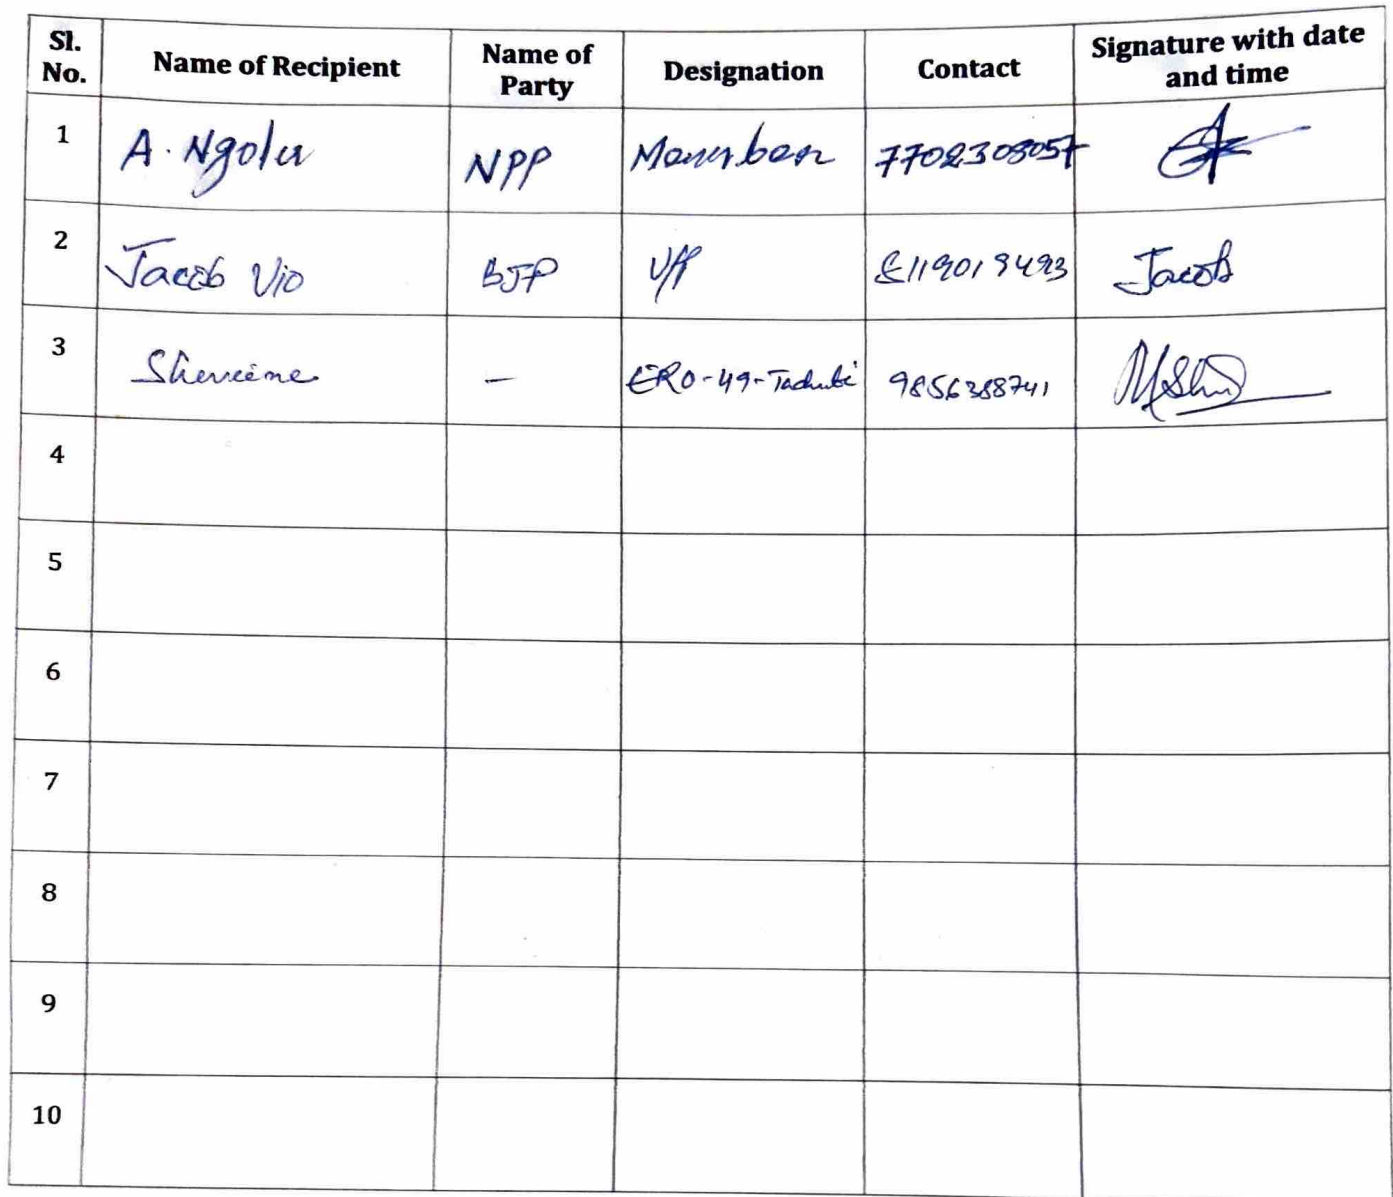 Sl. No. Name of Recipient Name of Party Designation Contact Signature with date and time
1 A. Ngolu NPP 7702308057
2 Jacob Vio BJP V/P 8119019493 Jacob
3 - ERO-49-Tadubi 9856388741
4
5
6
7
8
9
10